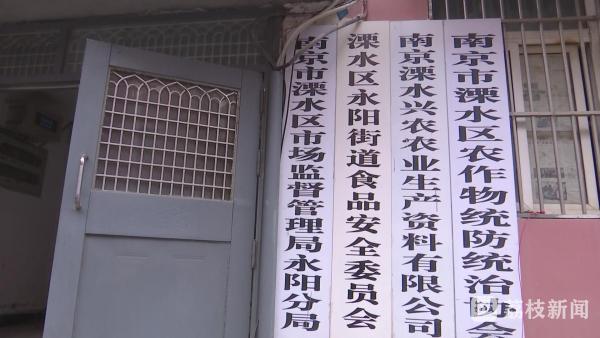 南京市溧水区市场监督管理局永阳分局
溧水区永阳街道食品安全委员会
南京溧水兴农农业生产资料有限公司
南京市溧水区农作物统防统治
会
荔枝新闻